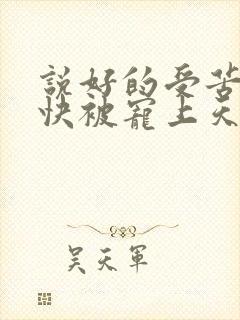 説好的受苦
快被寵上天
吴天軍